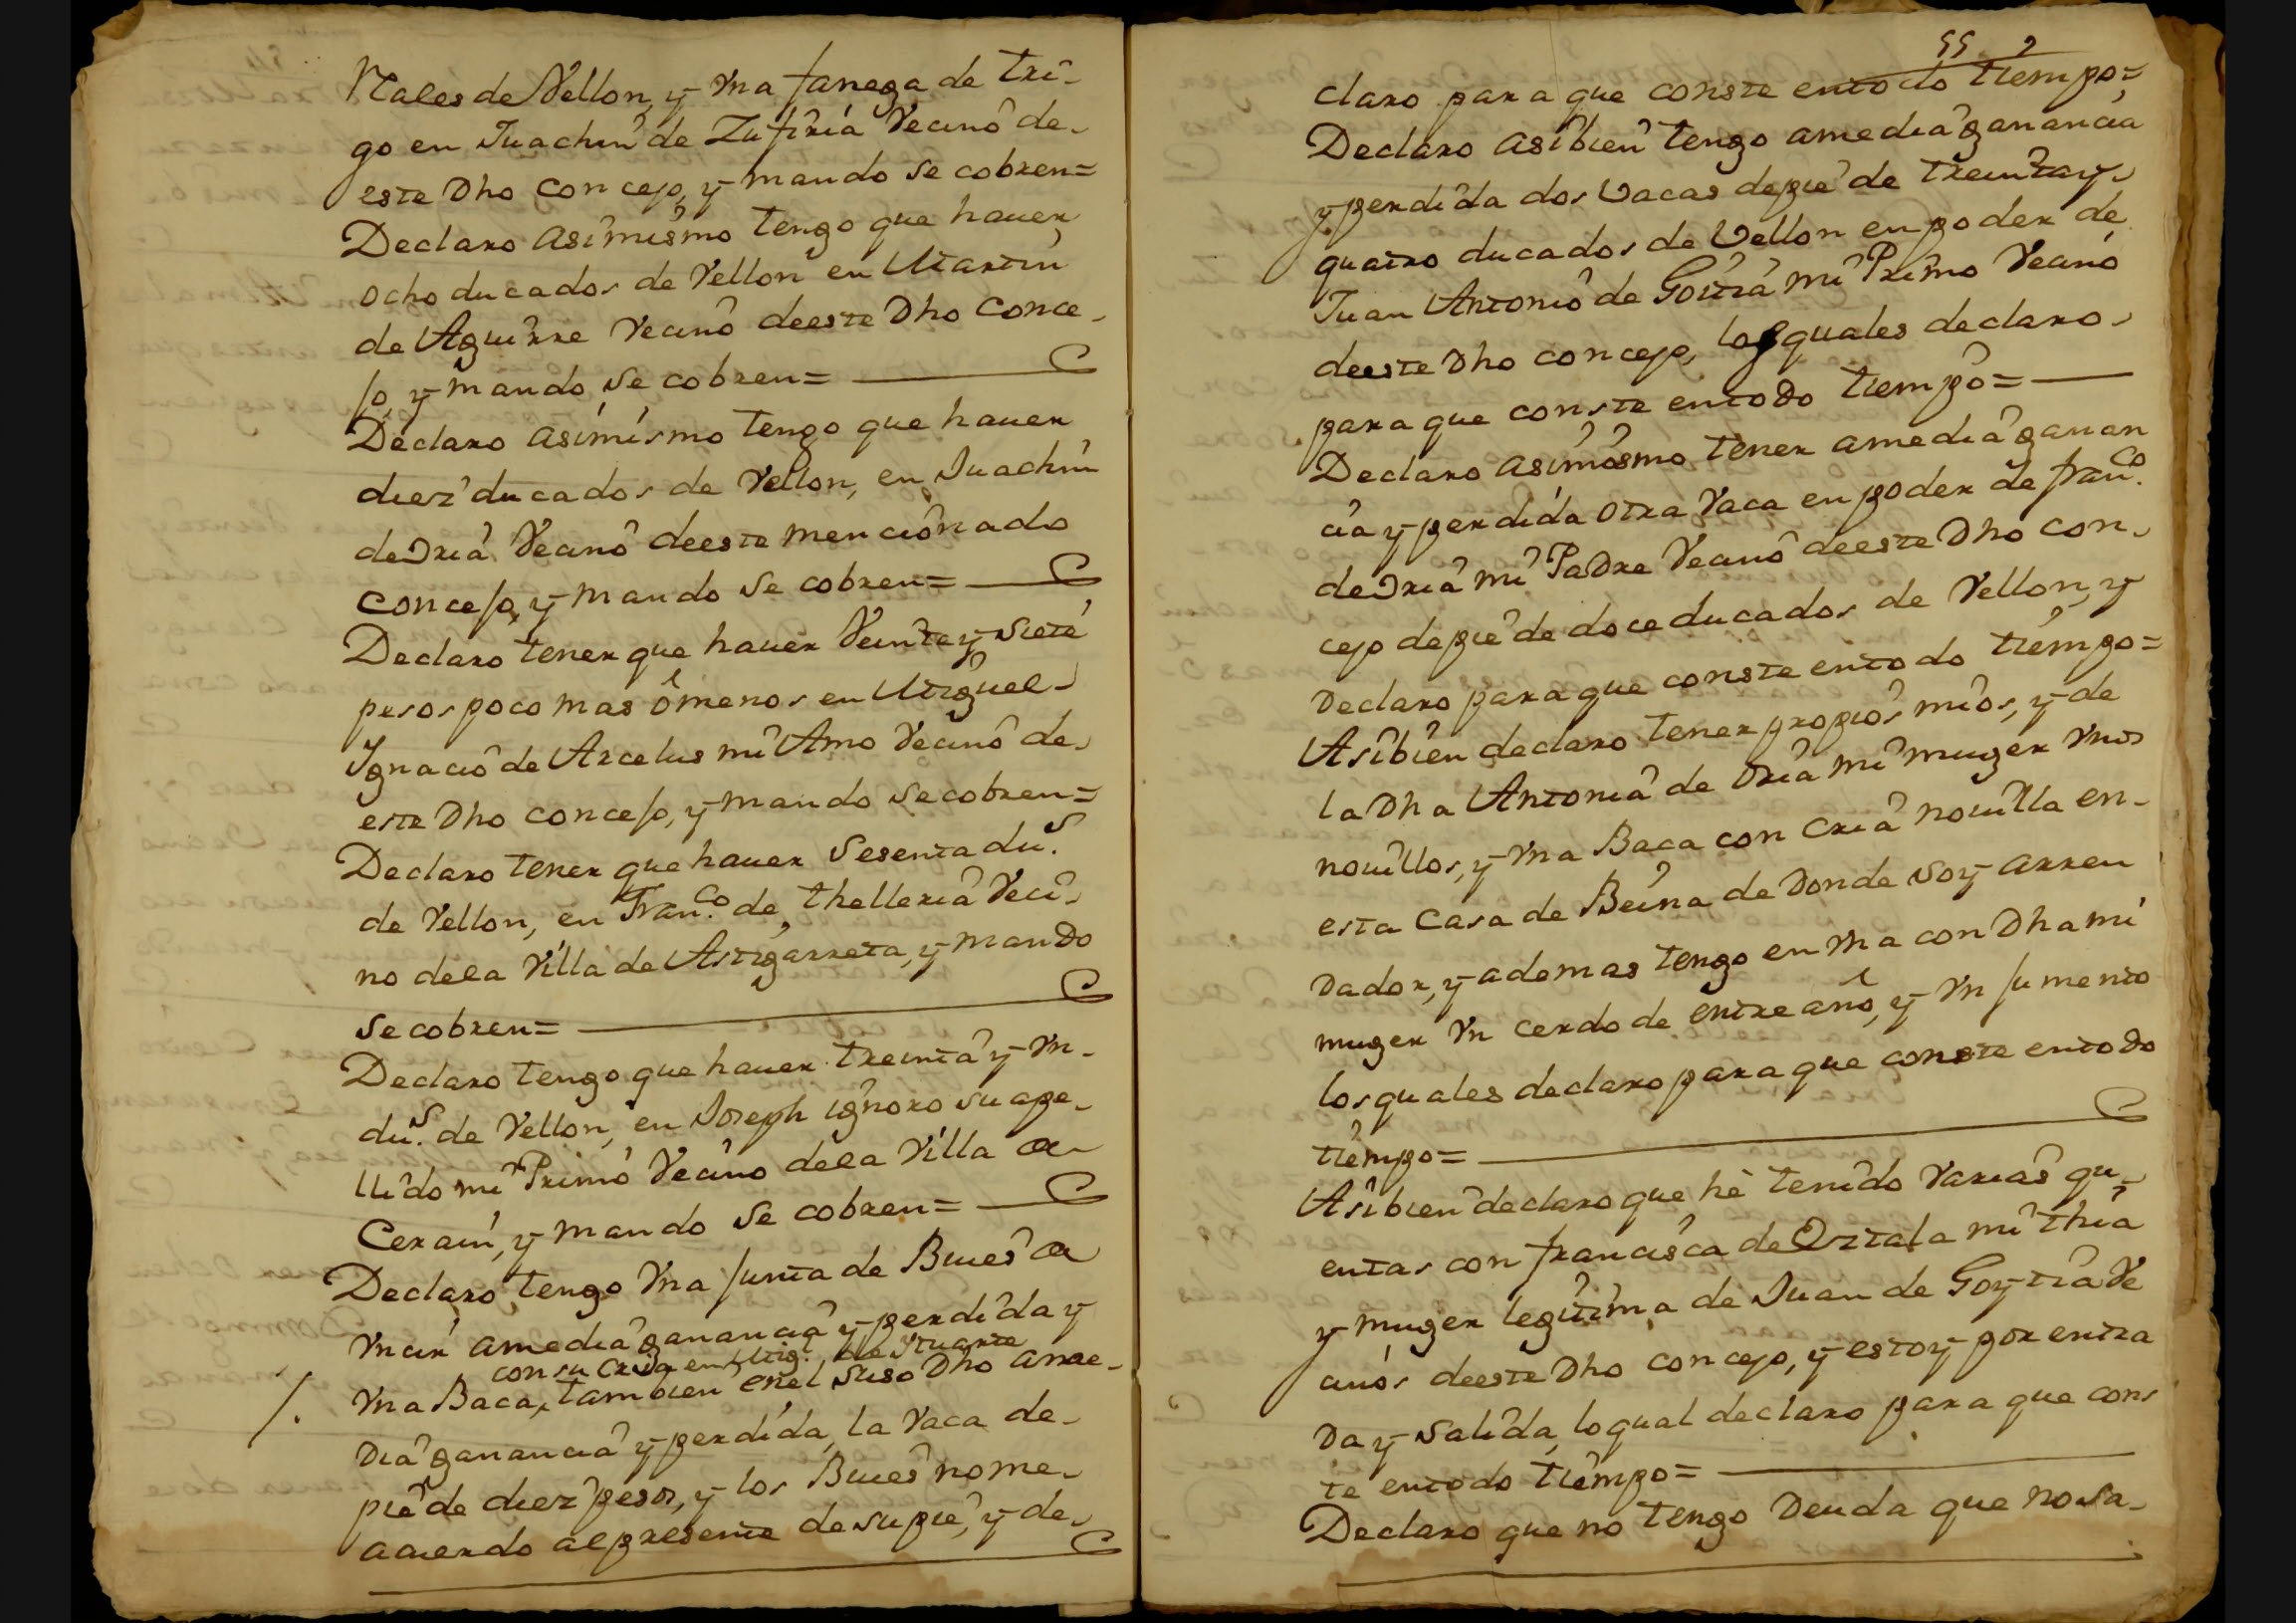 Rˢales de Vellon, y Vna fanega de tri-
go en Juachin de Zufiria Vecino de-
este Dho concejo, y mando se cobren=
Declaro asimismo tengo que hauer
ocho ducados de Vellon en Martin
de Aguirre Vecino deeste Dho Conce-
jo, y mando se cobren=
Declaro asimismo tengo que hauer
diez ducados de Vellon, en Juachin
de Oria Vecino deeste mencionado
concejo, y mando se cobren=
Declaro tener que hauer Veinte y siete
pesos poco mas ô menos en Miguel-
Ygnacio de Arcelus mi Amo Vecino de-
este Dho concejo, y mando se cobren=
Declaro tener que hauer Sesenta du.ˢ
de Vellon, en Fran.ᶜᵒ de thelleria Veci-
no dela Villa de Astigarreta, y mando
se cobren=
Declaro tengo que hauer treinta y Vn-
du.ˢ de Vellon, en Joseph ignoro su ape-
llido mi Primo Vecino dela Villa de
Cerain, y mando se cobren=
Declaro tengo Vna junta de Buies de
Vncir amedia ganancia y perdida y
con su cria en Mig.ˡ de Ytuarte
/. Vna Baca, tambien enel suso Dho ame-
dia ganancia y perdida, la Vaca de-
pie de diez pesos, y los Buies nome-
acuerdo alpresente desupie, y de-
55 2
claro para que conste entodo tiempo=
Declaro asibien tengo amedia ganancia
y perdida dos Vacas depie de treinta y-
quatro ducados de Vellon enpoder de
Juan Antonio de Goitia mi Primo Vecino
deeste Dho concejo, los quales declaro-
para que conste entodo tiempo=
Declaro asimosmo tener amedia ganan
cia y perdida otra Vaca enpoder de fran.ᶜᵒ
de Oria mi Padre Vecino deeste Dho con-
cejo depie de doce ducados de Vellon, y
Declaro para que conste entodo tiempo=
Asibien declaro tener propios mios, y de
la Dha Antonia de Oria mi muger Vnos
nouillos, y Vna Baca con cria nouilla en-
esta Casa de Beina de Donde soy arren
Dador, y ademas tengo en Vna con Dha mi
muger Vn cerdo de entre año, y Vn jumento
los quales declaro para que conste entodo
tiempo=
Asibien declaro que hè tenido Varias qu-
entas con francisca de Oztala mi thia
y muger legitima de Juan de Goytia Ve
cinos deeste Dho concejo, y estoy por entra
Da y salida, loqual declaro para que cons
te entodo tiempo=
Declaro que no tengo Deuda que nosa-